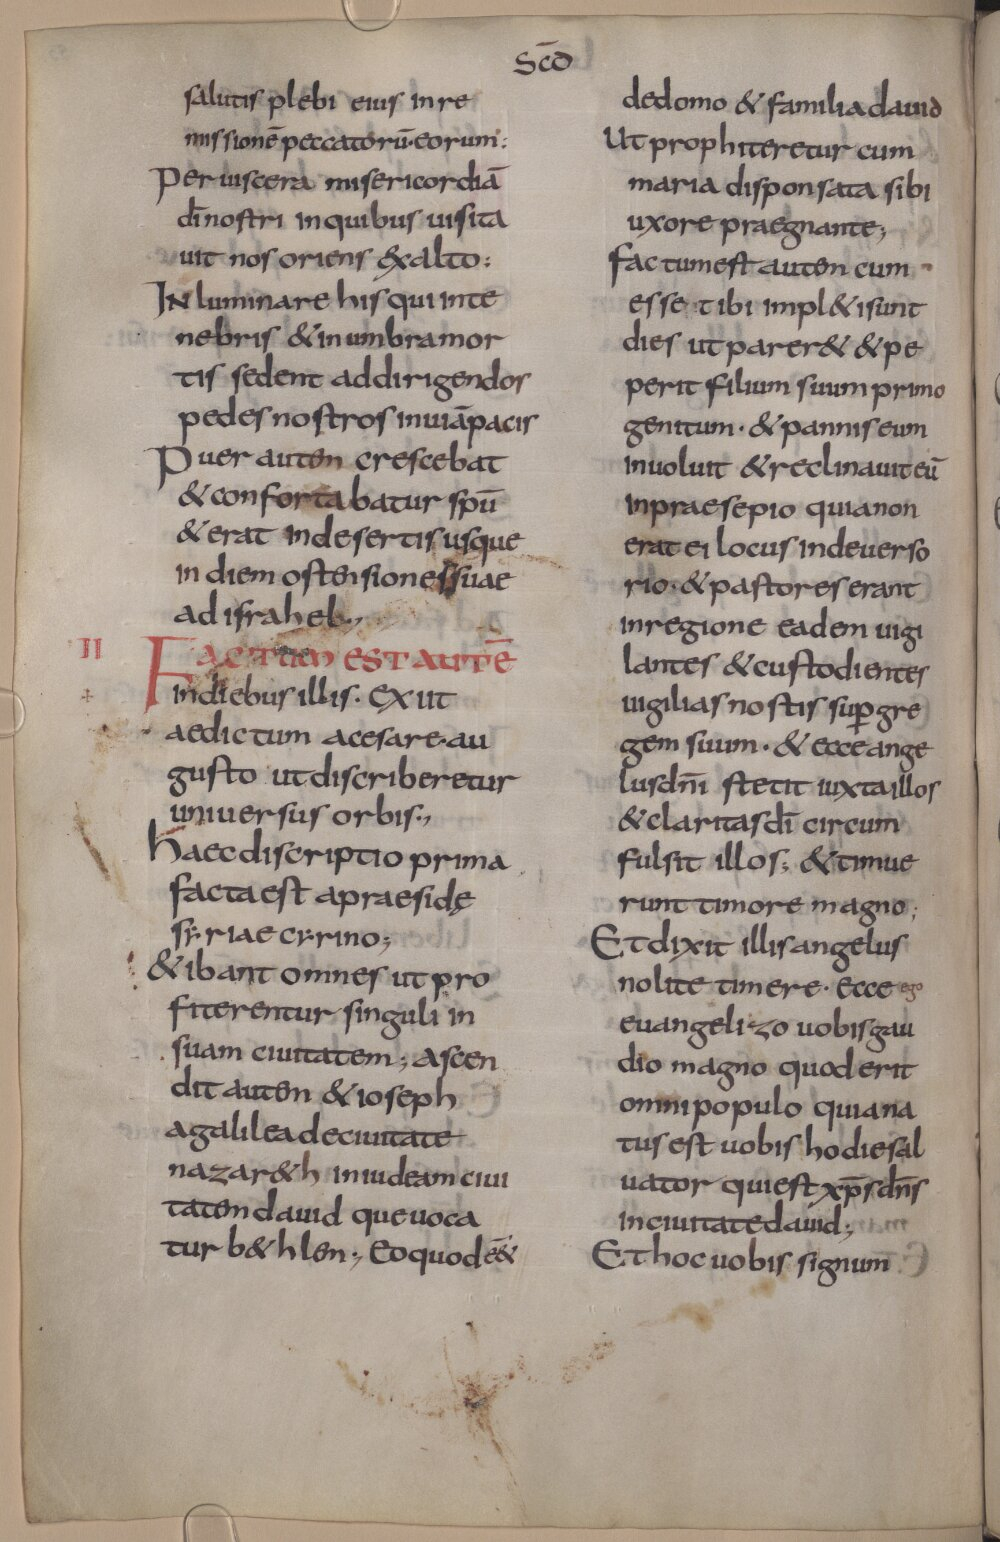 Scd̄
salutis plebi eius in re
missionē peccatorū·eorum:
Per uiscera misericordiā
dī nostri in quibus uisita
uit nos oriens exalto:
INluminare his qui in te
nebris & in umbra mor
tis sedent ad dirigendos
pedes nostros in uiā pacis
Puer autem crescebat
& confortabatur spū
& erat in desertis usque
in diem ostensiones suae
ad israhel·,
II FACTUM EST AUTĒ
in diebus illis· exiit
aedictum a cesare·au
gusto ut discriberetur
uniuersus orbis·,
haec discriptio prima
facta est a praeside
syriae cyrino;
& ibant omnes ut pro
fiterentur singuli in
suam ciuitatem; ascen
dit autem & ioseph
a galilea de ciuitate
nazar&h in iudeam ciui
tatem dauid que uoca
tur b&hlem·, eo quod eē&
de domo & familia dauid
Ut prophiteretur cum
maria disponsata sibi
uxore praegnante;
factum est autem cum
esse·t ibi impl&i sunt
dies ut parer& & pe
perit filium suum primo
genitum· & pannis eum
inuoluit & reclinauit eū
in praesepio quia non
erat ei locus in deuerso
rio·& pastores erant
in regione eadem uigi
lantes & custodientes
uigilias nostis sup gre
gem suum· & ecce ange
lus dn̄i stetit iuxta illos
& claritas dī circum
fulsit illos; & timue
runt timore magno;
Et dixit illis angelus
nolite timere· ecce ego
euangelizo uobis gau
dio magno quod erit
omni populo quia na
tus est uobis hodie sal
uator qui est xp̄s dn̄s
in ciuitate dauid;
Et hoc uobis signum